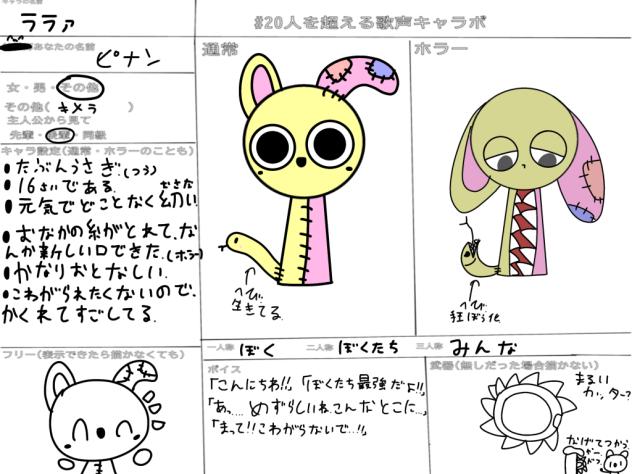 キャラの名前
ララァ
あなたの名前
ピナン
女・男・その他
その他( キメラ )
主人公から見て
先輩・後輩・同級
#20人を超える歌声キャラボ
通常
ホラー
キャラ設定(通常・ホラーのことも)
・たぶんうさぎ.(つう)
・16さいである.
・元気でどことなく幼い
・おなかの糸がとれて、な
んか新しい口できた.(ホラー)
・かなりおとなしい.
・こわがられたくないので、
かくれてすごしてる.
へび
生きてる.
へび
狂ぼう化.
フリー(表示できたら描かなくても)
一人称 ぼく
二人称 ぼくたち
三人称 みんな
ボイス
「こんにちわ!!」「ぼくたち最強だよ!!」
「あっ....めずらしいね、こんなとこに...」
「まって!!こわがらないで...!!」
武器(無しだった場合描かない)
まるい
カッター?
なげてつかう.